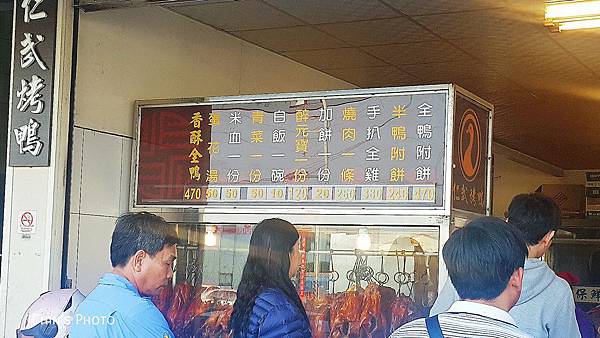 仁武烤鴨
全鴨附餅 470
半鴨附餅 240
手扒全雞
燒肉一條
加餅一份 20
醉元寶一份
白飯一碗 10
青菜一份 50
米血一份 50
蛋花湯 50
香酥全鴨 470
仁武烤
保鮮
PHOTO